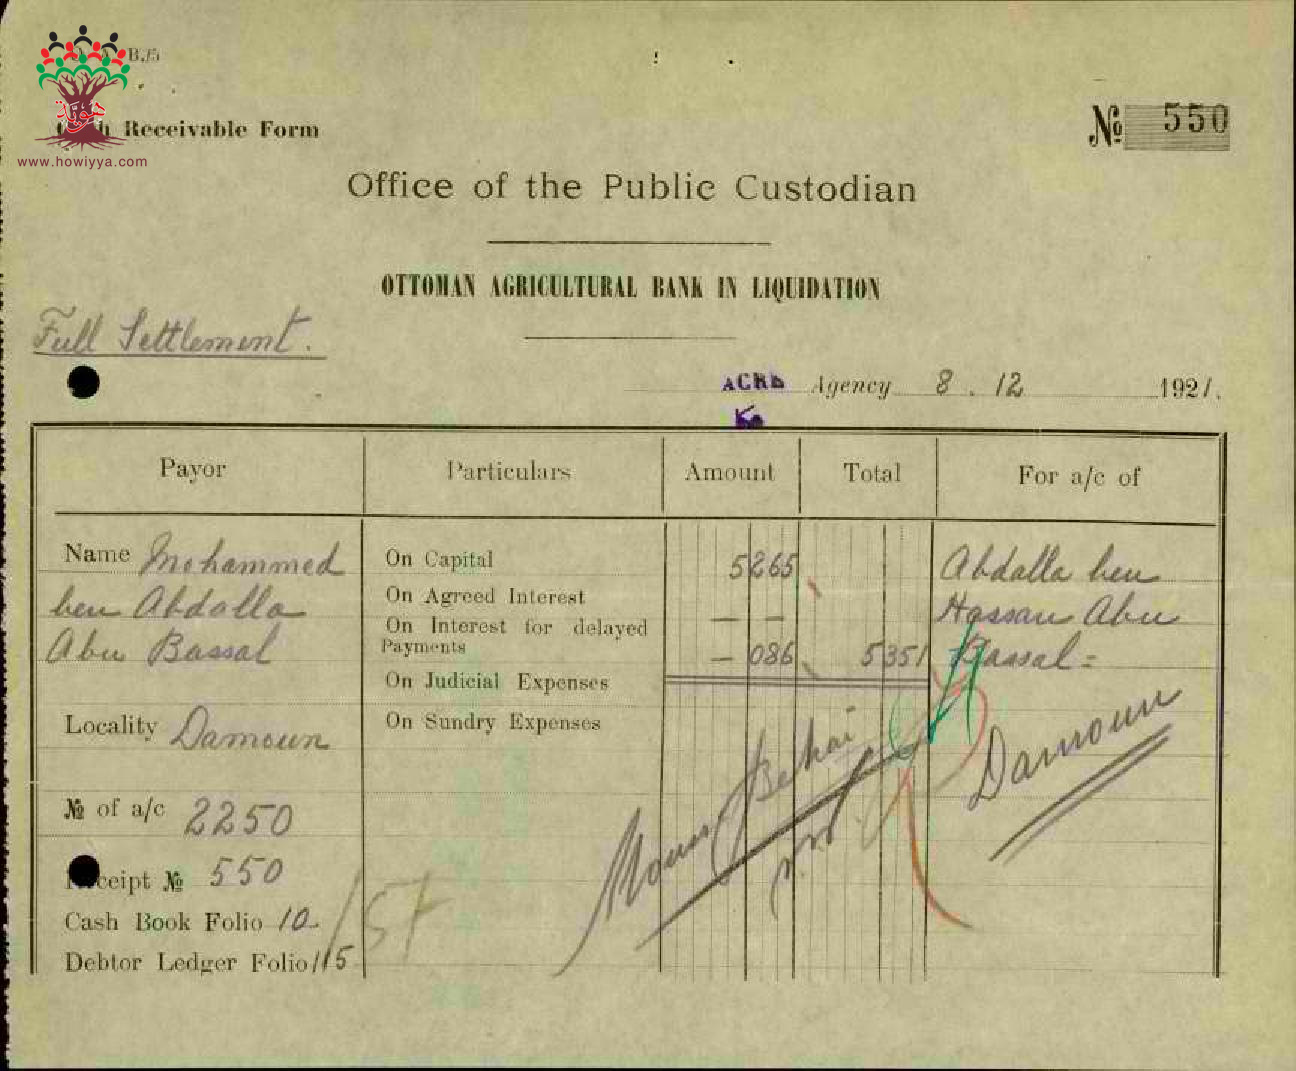 B.15
هوية
www.howiyya.com
Receivable Form
№ 550
Office of the Public Custodian
OTTOMAN AGRICULTURAL BANK IN LIQUIDATION
Full Settlement.
ACRE Agency 8 . 12 1921.
Payor Particulars Amount Total For a/c of
Name Mohammed On Capital 5265 Abdalla ben
ben Abdalla On Agreed Interest Hassan Abu
Abu Bassal On Interest for delayed Payments — 086 5351 Bassal =
On Judicial Expenses
Locality Damoun On Sundry Expenses
Damoun
№ of a/c 2250
Receipt № 550
Cash Book Folio 10
Debtor Ledger Folio 115